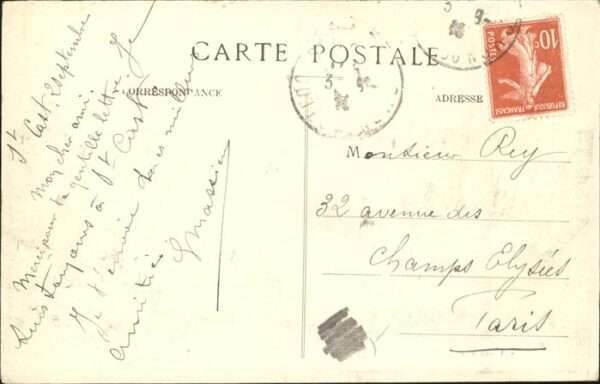 CARTE POSTALE
CORRESPONDANCE
ADRESSE
St Cast, 2 septembre
Mon cher ami.
Merci pour ta gentille lettre. Je
suis toujours à St Cast.
Je t'envoie mes meilleures
amitiés
Monsieur Rey
32 avenue des
Champs Elysées
Paris
10c
POSTES
REPUBLIQUE FRANÇAISE